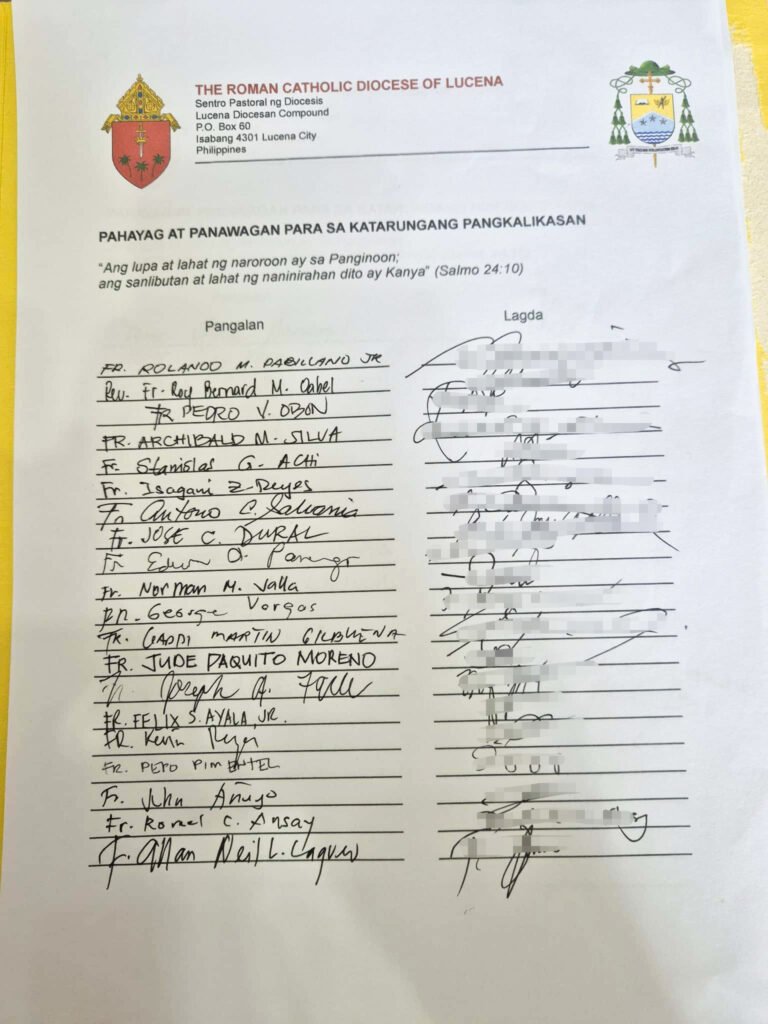 THE ROMAN CATHOLIC DIOCESE OF LUCENA
Sentro Pastoral ng Diocesis
Lucena Diocesan Compound
P.O. Box 60
Isabang 4301 Lucena City
Philippines
PAHAYAG AT PANAWAGAN PARA SA KATARUNGANG PANGKALIKASAN
“Ang lupa at lahat ng naroroon ay sa Panginoon;
ang sanlibutan at lahat ng naninirahan dito ay Kanya” (Salmo 24:10)
Pangalan
Lagda
FR. ROLANDO M. PABILLANO JR
Rev. Fr. Roy Bernard M. Oabel
FR PEDRO V. OBON
FR. ARCHIBALD M. SILVA
Fr. Stanislas G. ACHI
Fr. Isagani Z. Reyes
Fr Antono C. Salvania
Fr. JOSE C. DURAL
Fr Edwin A.
Fr. Norman M. Valla
George Vargas
FR. GADDI MARTIN GILBUENA
FR. JUDE PAQUITO MORENO
Fr. Joseph A.
FR. FELIX S. AYALA, JR.
FR. Kevin
FR. PEPO PIMENTEL
Fr. John Añuyo
Fr. Romel C. Ansay
Fr. Allan Neil L.